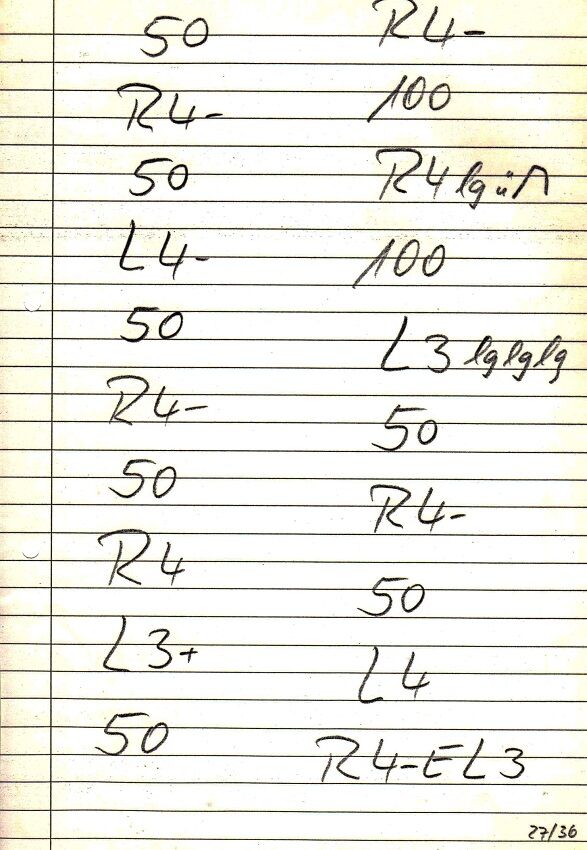 50
R4-
50
L4-
50
R4-
50
R4
L3+
50
R4-
100
R4 lg ü
100
L3 lglglg
50
R4-
50
L4
R4-EL3
27/36